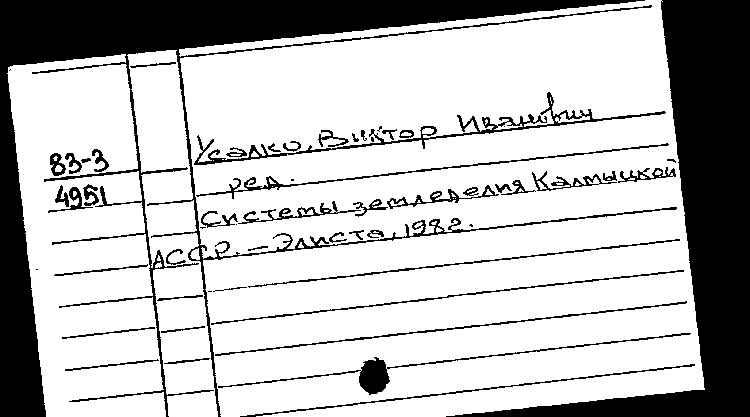 83-3
4951
Усалко, Виктор Иванович
ред.
Системы земледелия Калмыцкой
АССР. – Элиста, 1982.